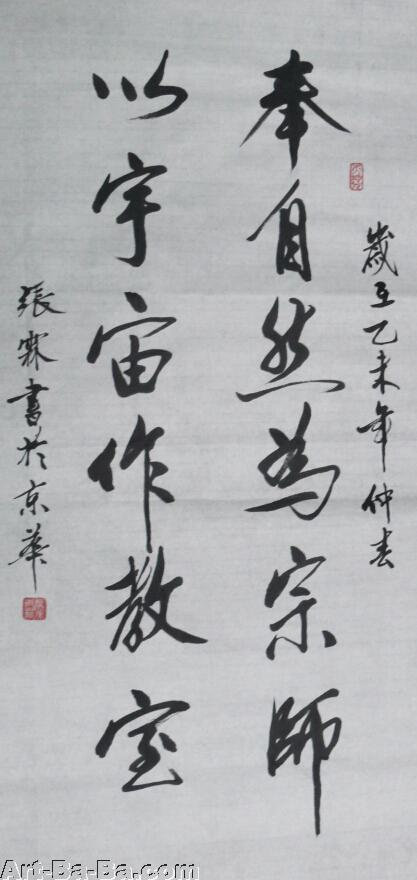 歲在乙未年仲春
奉自然為宗師
以宇宙作教室
張霖書於京華
Art-Ba-Ba.com